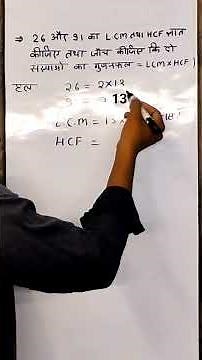 ⇒ 26 और 91 का LCM तथा HCF ज्ञात
कीजिए तथा जाँच कीजिए कि दो
संख्याओं का गुणनफल = LCM x HCF)
हल 26 = 2x13
13
LCM = 13
HCF =